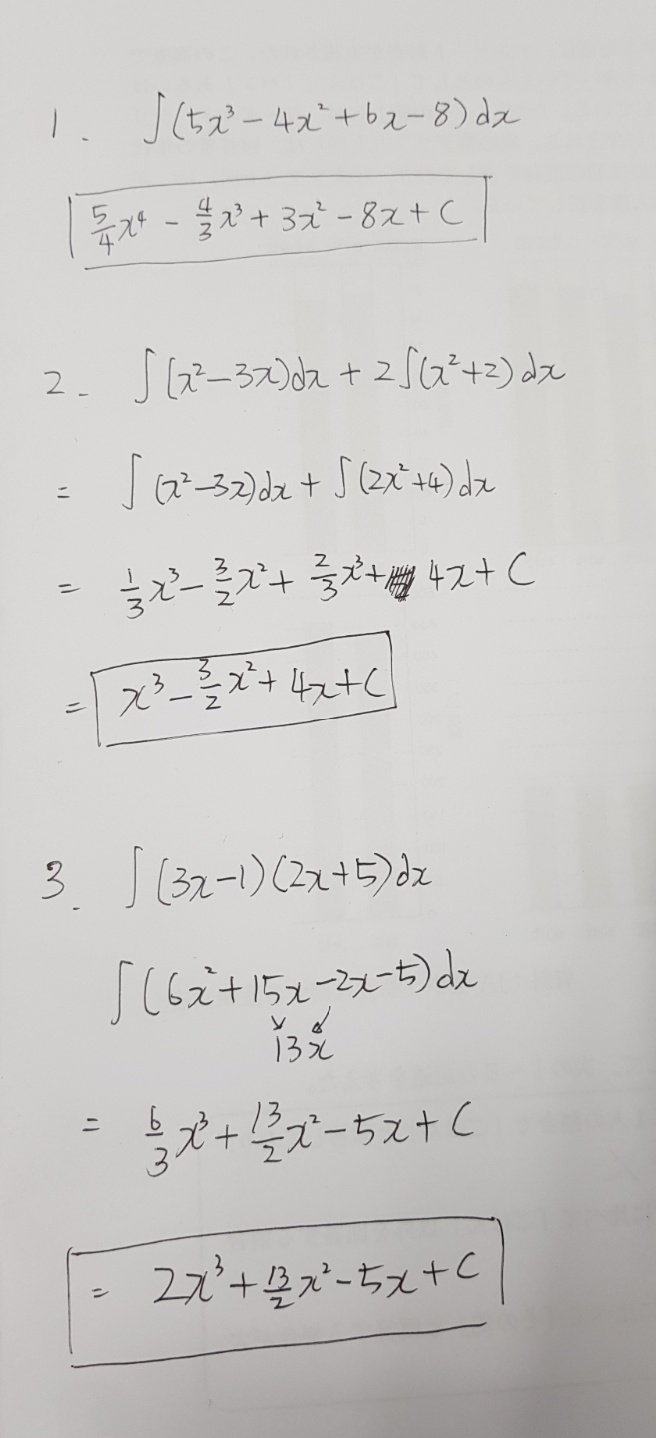 1. ∫(5x³ − 4x² + 6x − 8)dx
5/4 x⁴ − 4/3 x³ + 3x² − 8x + C
2. ∫(x² − 3x)dx + 2∫(x² + 2)dx
= ∫(x² − 3x)dx + ∫(2x² + 4)dx
= 1/3 x³ − 3/2 x² + 2/3 x³ + 4x + C
= x³ − 3/2 x² + 4x + C
3. ∫(3x − 1)(2x + 5)dx
∫(6x² + 15x − 2x − 5)dx
13x
= 6/3 x³ + 13/2 x² − 5x + C
= 2x³ + 13/2 x² − 5x + C